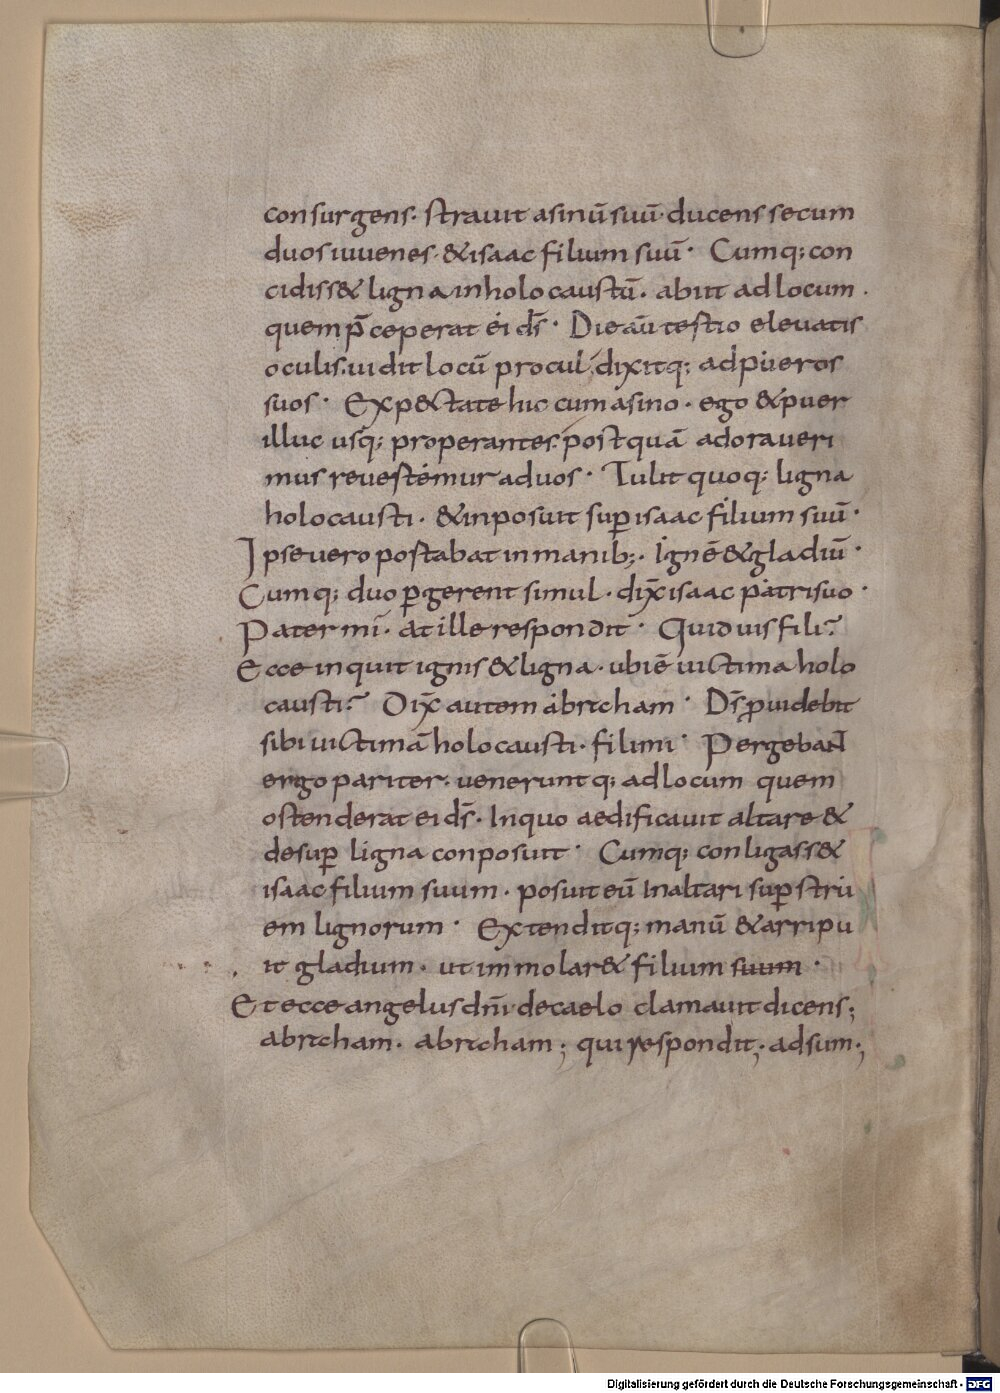 consurgens· stravit asinū suū· ducens secum
duos iuuenes· & isaac filium suū· Cumq; con
cidiss& ligna in holocaustū· abiit ad locum·
quem p̄ceperat ei d̄s· Die aū tertio elevatis
oculis· uidit locū procul; dixitq; ad pueros
suos· Exp&ctate hic cum asino· ego & puer
illuc usq; properantes· postquā adoraueri
mus reuertemur ad uos· Tulit quoq; ligna
holocausti· & inposuit sup̄ isaac filium suū·
Ipse uero portabat in manib;· ignē & gladiū·
Cumq; duo p̄gerent simul· dix̄ isaac patri suo·
Pater mī· at ille respondit· Quid uis fili?
Ecce inquit ignis & ligna· ubi ē uictima holo
causti? Dix̄ autem abrcham· D̄s p̄uidebit
sibi uictimā holocausti· fili mi· Pergebant
ergo pariter· uenerunt q; ad locum quem
ostenderat ei d̄s· In quo aedificauit altare &
desup̄ ligna conposuit· Cumq; conligass&
isaac filium suum· posuit eū in altari sup̄ stru
em lignorum· Extenditq; manū & arripu
it gladium· ut immolar& filium suum·
Et ecce angelus dn̄i· de caelo clamauit dicens;
abrcham· abrcham; qui respondit;· adsum·;
Digitalisierung gefördert durch die Deutsche Forschungsgemeinschaft - DFG